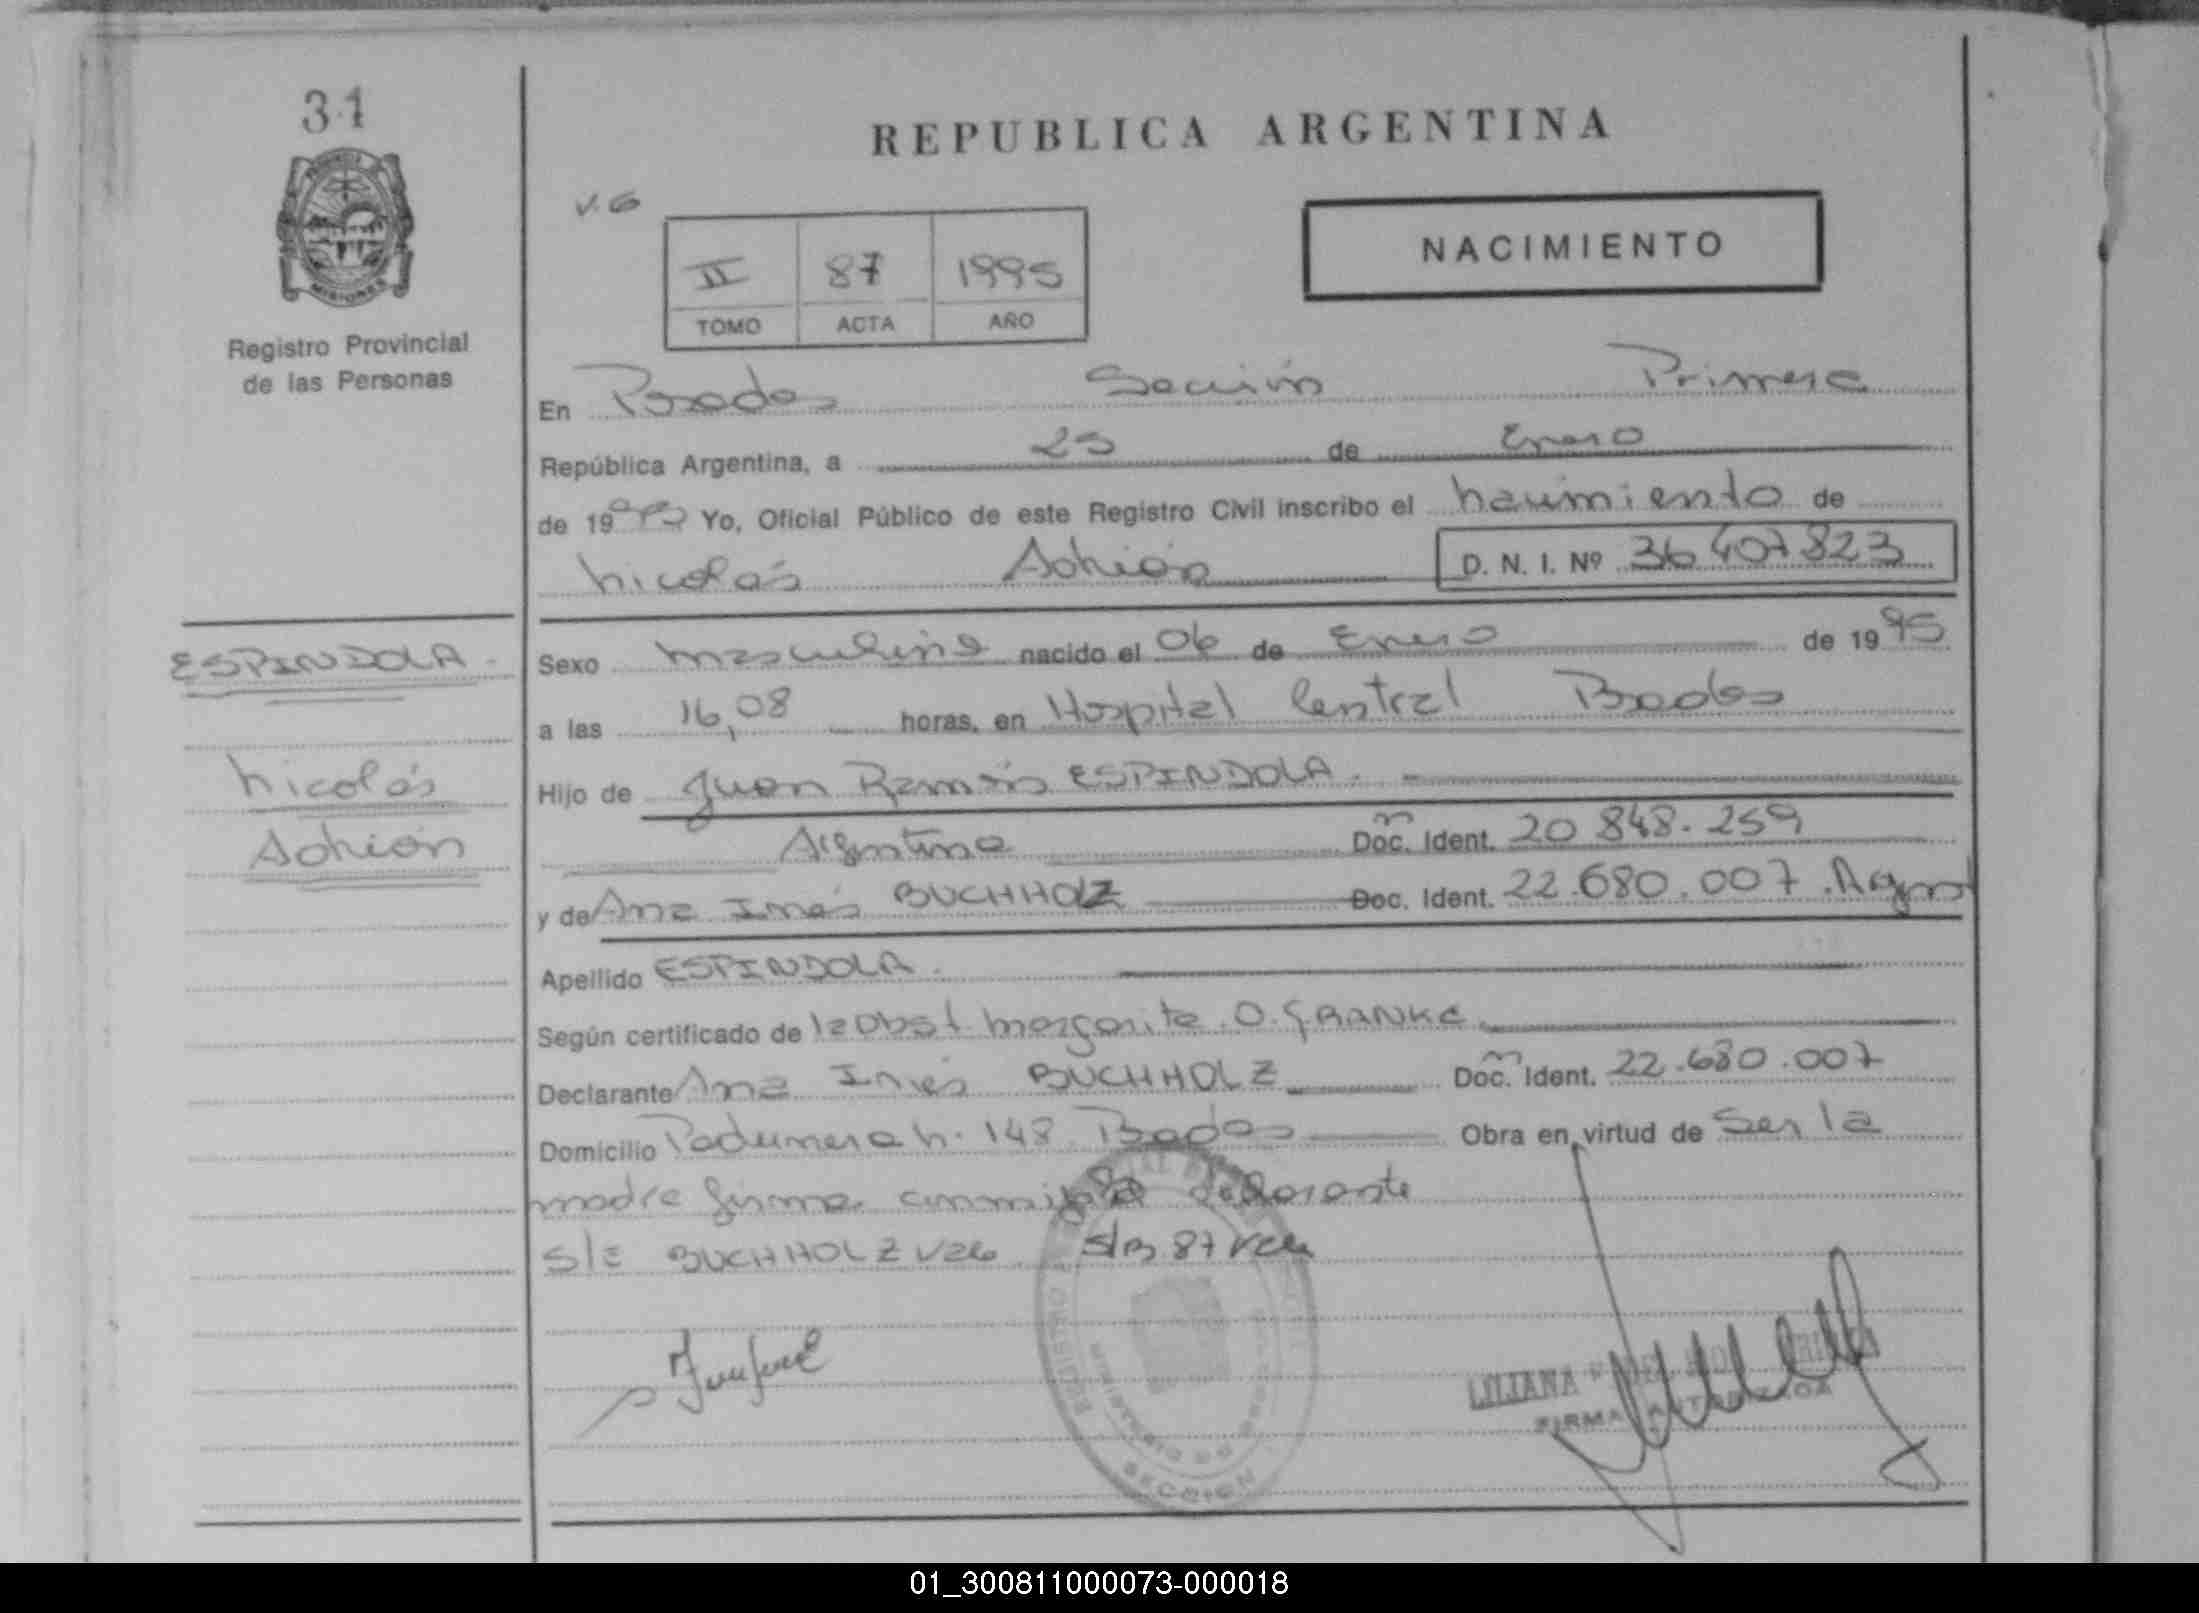 31
REPUBLICA ARGENTINA
V. 6
NACIMIENTO
II 87 1995
TOMO ACTA AÑO
MISIONES
Registro Provincial
de las Personas
En Posadas Sección Primera
República Argentina, a 25 de Enero
de 19 Yo, Oficial Público de este Registro Civil inscribo el nacimiento de
Nicolás Adrián D. N. I. Nº 36 407 823
ESPINDOLA.
Sexo masculino nacido el 06 de Enero de 1995
a las 16,08 horas, en Hospital Central Posadas
Nicolás
Hijo de Juan Ramón ESPINDOLA.
Adrián
Argentino Doc. Ident. 20 848.259
y de Ana Inés BUCHHOLZ Doc. Ident. 22.680.007.
Apellido ESPINDOLA.
Según certificado de la Obst Margarita O.
Declarante Ana Inés BUCHHOLZ Doc. Ident. 22.680.007
Domicilio 148 Posadas Obra en virtud de ser la
madre firma conmigo
S/E BUCHHOLZ Vale S/B 87 Vale
REGISTRO
MINISTERIO DE GOBIERNO
SECCION
LILIANA
FIRMA AUTORIZADA
01_300811000073-000018